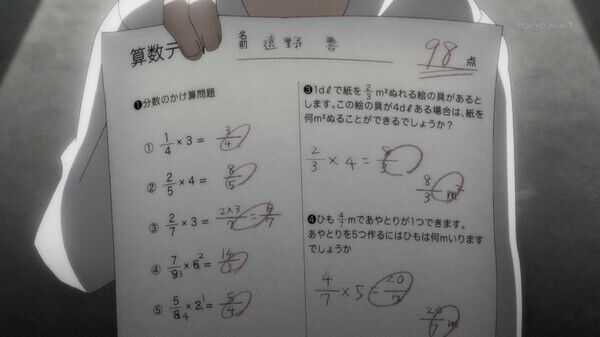 TOKYO MX 1
算数テ
名前 遠野 善
98点
❶分数のかけ算問題
① 1/4 × 3 = 3/4
② 2/5 × 4 = 8/5
③ 2/7 × 3 = 2×3/7 = 6/7
④ 7/9 3 × 6 2 = 14/3
⑤ 5/8 4 × 2 1 = 5/4
❸1dℓで紙を 2/3 m²ぬれる絵の具があると
します。この絵の具が4dℓある場合は、紙を
何m²ぬることができるでしょうか?
2/3 × 4 = 8/3
8/3 m²
❹ひも 4/7 mであやとりが1つできます。
あやとりを5つ作るにはひもは何mいります
でしょうか
4/7 × 5 = 20/7
20/7 m